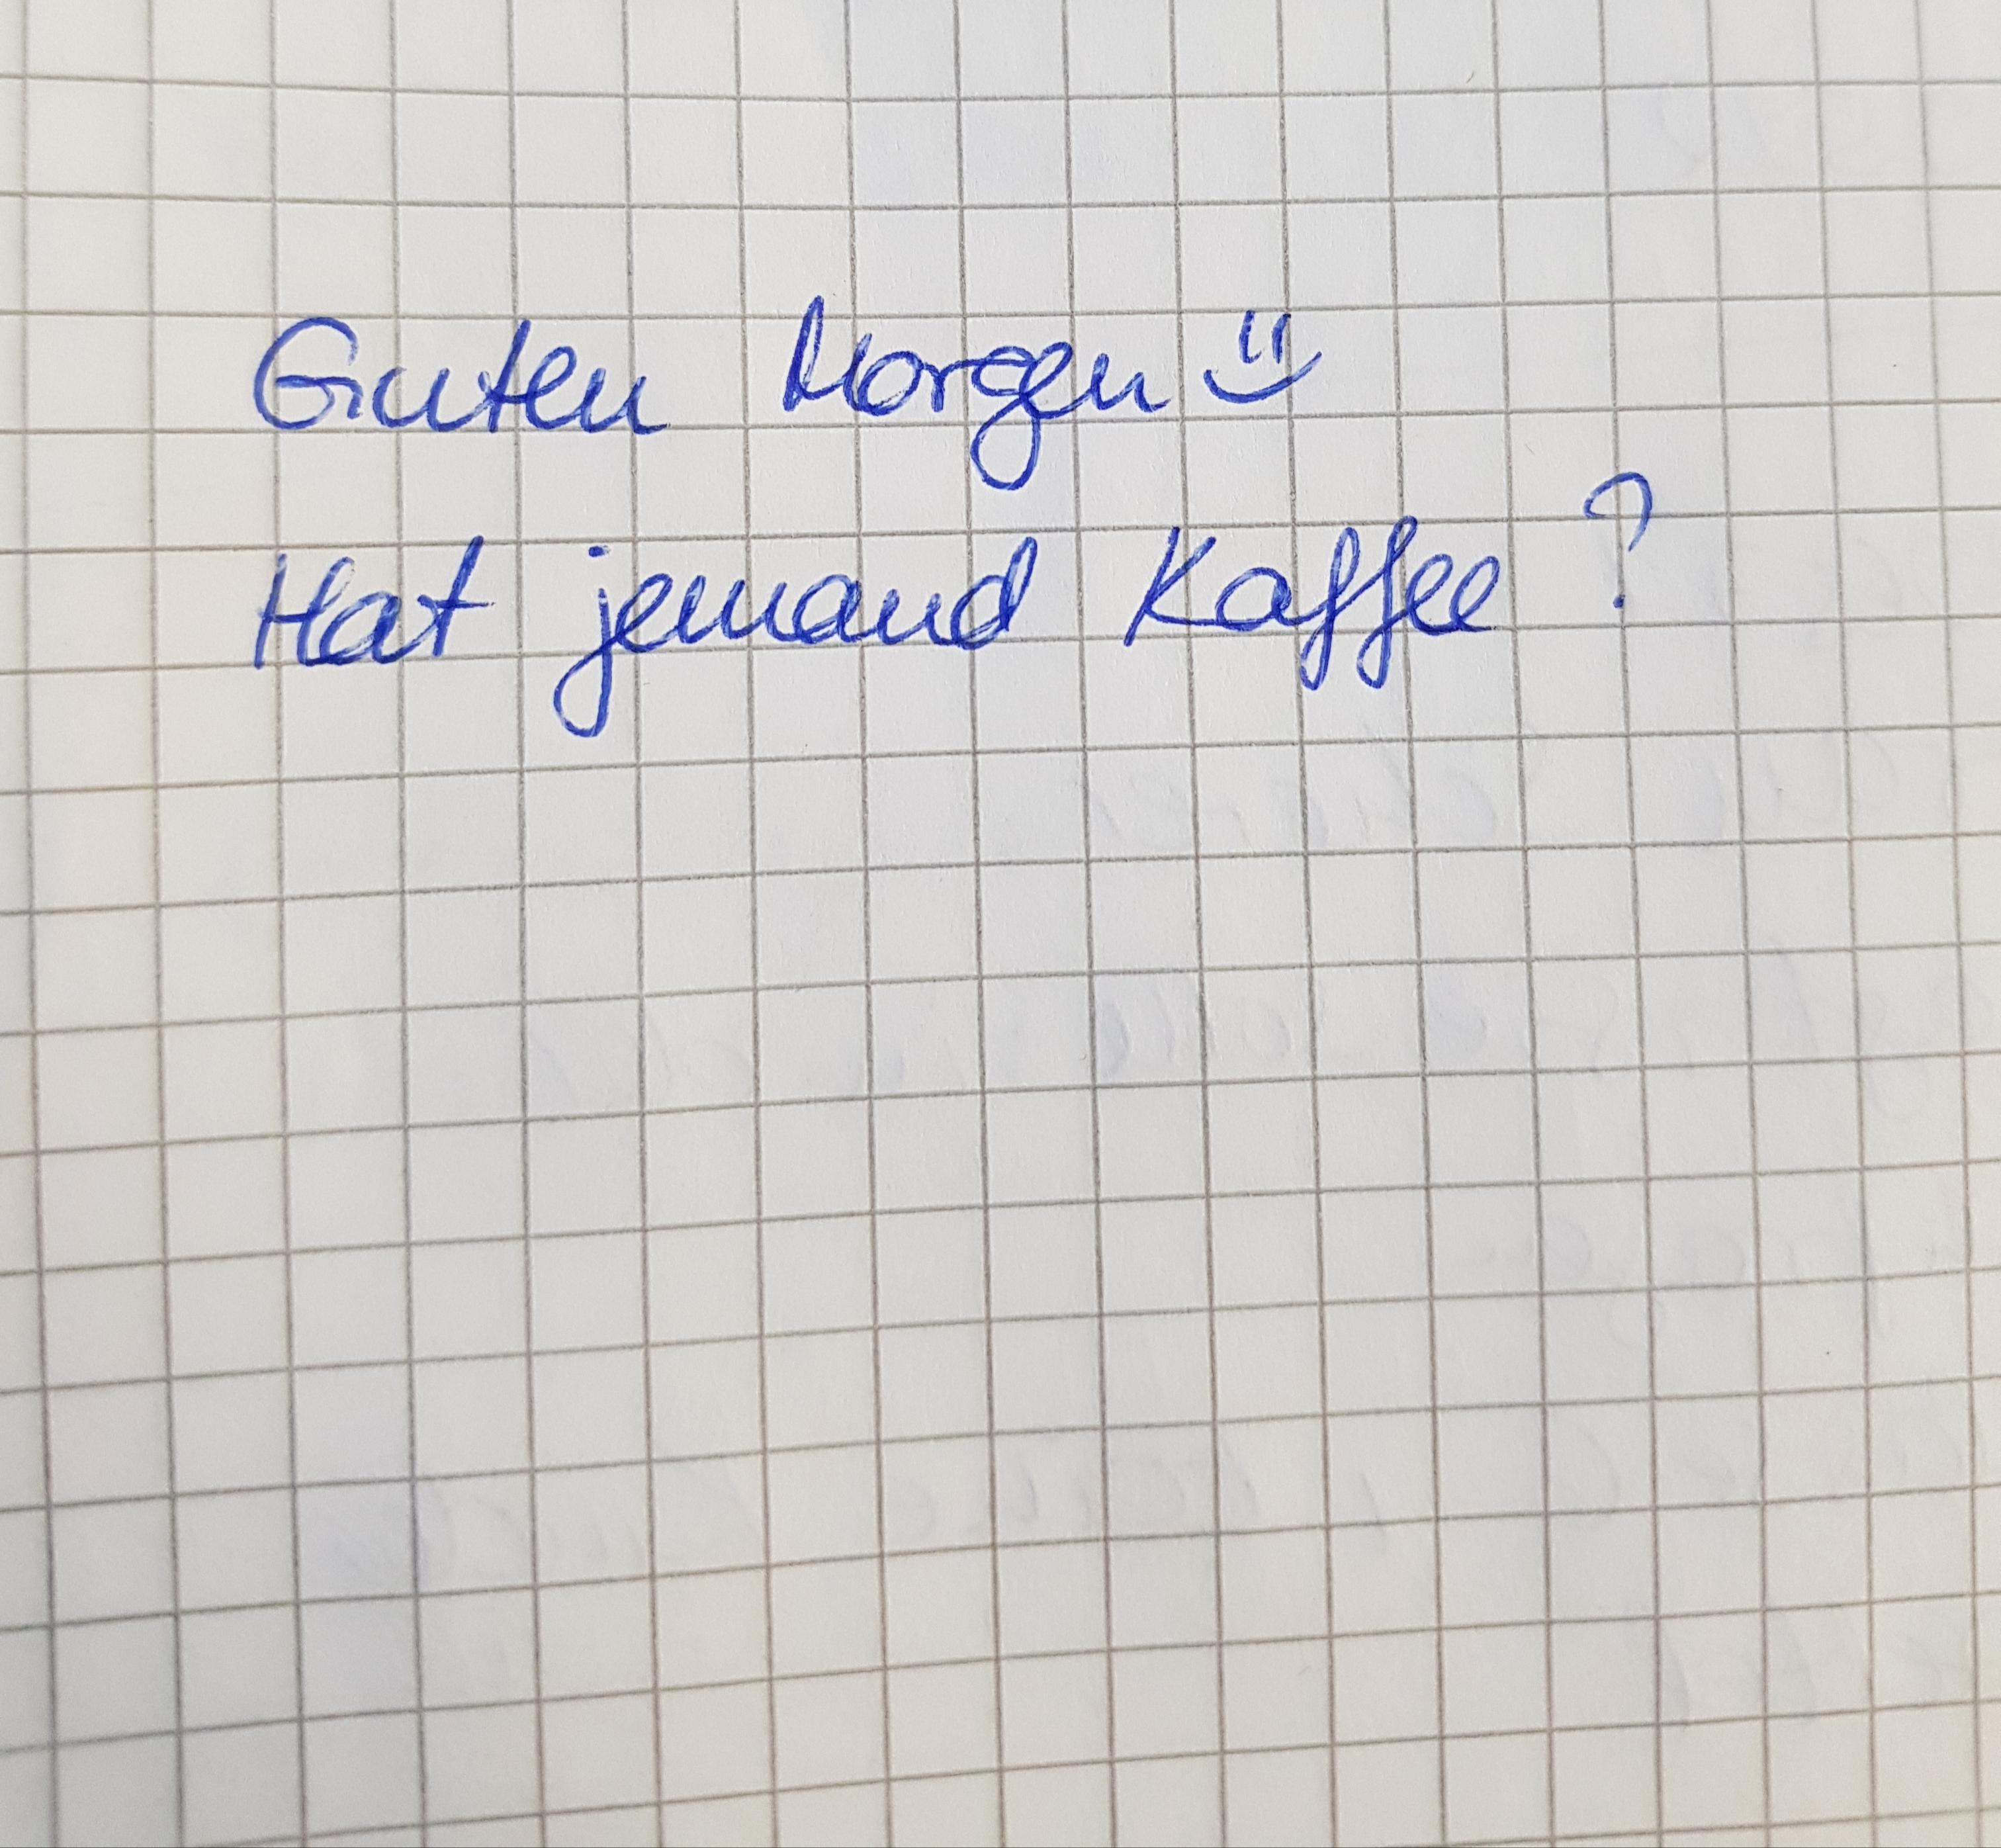 Guten Morgen
Hat jemand Kaffee?